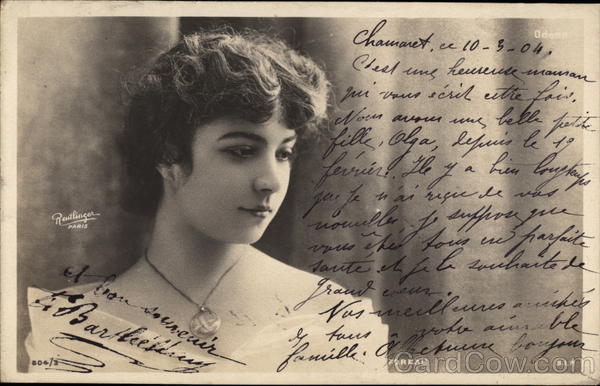 Odéon
Chamaret, ce 10-3-04.
C'est une heureuse maman
qui vous écrit cette fois.
Nous avons une belle petite
fille, Olga, depuis le 19
février. Il y a bien longtemps
que je n'ai reçu de vos
nouvelles. je suppose que
vous êtes tous en parfaite
santé et je le souhaite de
grand coeur.
Nos meilleures amitiés
à tous votre aimable
famille.
bonjour
et bon souvenir
Barthélémy
Reutlinger
PARIS
804/3
CardCow.com